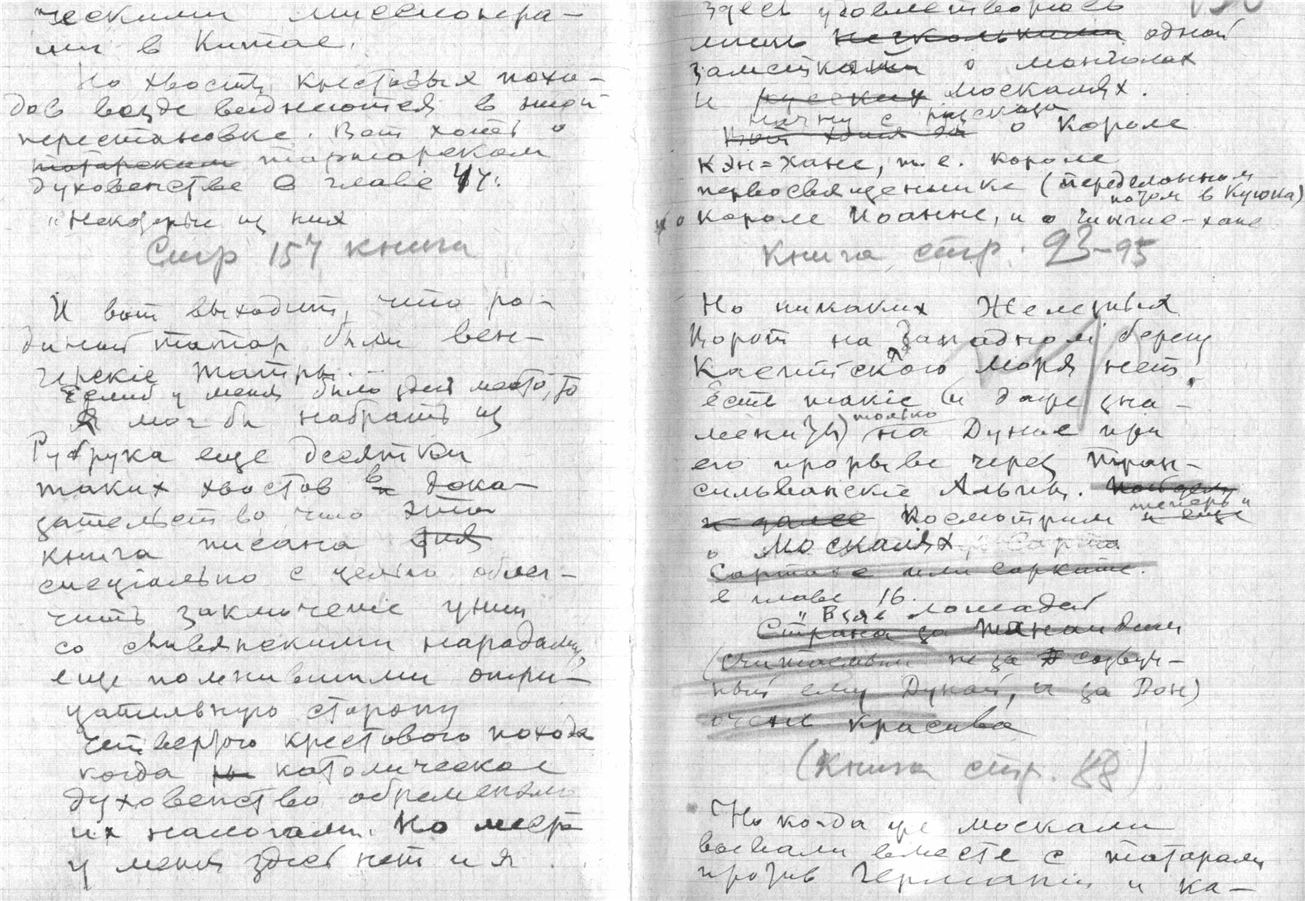 ческими миссионера-
ми в Китае.
Но хвосты крестовых похо-
дов везде виднеются в этой
перестановке. Вот хоть о
татарском тартарском
духовенстве в главе 44.
"Некоторые из них
Стр 157 книга
И вот выходит, что ро-
диной татар были вен-
герскіе Татры.
Если у меня было здесь место, то
Я мог бы набрать из
Рубрука еще десятки
таких хвостов в дока-
зательство, что эта
книга писана
специально с целью облег-
чить заключеніе унии
со славянскими народами,
еще помнившими отри-
цательную сторону
четвертого крестового похода
когда католическое
духовенство обременяло
их налогами. Но места
у меня здесь нет и я
Здесь удовлетворюсь
лишь несколькими одной
заметкой о монголах
и русских москалях.
Начну с рассказа
о Короле
Кэн=Хане, т.е. короле
первосвященнике (переделанном
потом в Куюка)
о короле Иоанне, и о Чингис-хане
Книга стр. 93-95
Но никаких Железных
Ворот на Западном берегу
Каспийского моря нет.
Есть такіе (и даже зна-
мениты) только на Дунае при
его прорыве через Тран-
сильванскіе Альпы.
и далее Посмотрим теперь и еще
о москалях
Сартахе или
в главе 16.
"Вся лошадей
Страна за Танаидом
(считаемым не за созвуч-
ный ему Дунай, а за Дон)
очень красива
(Книга стр. 88)
Но когда же москали
воевали вместе с татарами
против Германии и ка-